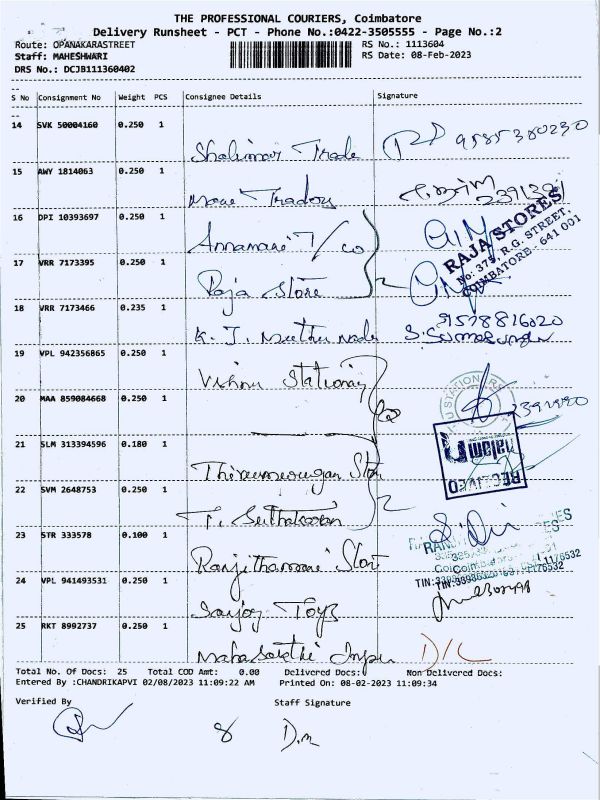 THE PROFESSIONAL COURIERS, Coimbatore
Delivery Runsheet - PCT - Phone No.:0422-3505555 - Page No.:2
Route: OPANAKARASTREET
RS No.: 1113604
Staff: MAHESHWARI
RS Date: 08-Feb-2023
DRS No.: DCJB111360402
S No Consignment No Weight PCS Consignee Details Signature
14 SVK 50004160 0.250 1
Shalimar Trade 9585380230
15 AWY 1814063 0.250 1
16 DPI 10393697 0.250 1
Annamani
RAJA STORES
No: 375, R.G. STREET,
COIMBATORE - 641 001
17 VRR 7173395 0.250 1
Raja Store
18 VRR 7173466 0.235 1
K. J. 9578816020
19 VPL 942356865 0.250 1
Vishnu Stationary
20 MAA 859084668 0.250 1
21 SLM 313394596 0.180 1
Thirumurugan Store
RECEIVED
22 SVM 2648753 0.250 1
23 STR 333578 0.100 1
Ranjithamani Store
24 VPL 941493531 0.250 1
Sanjoy Toys
25 RKT 8992737 0.250 1
Mahasakthi D/C
Total No. Of Docs: 25 Total COD Amt: 0.00 Delivered Docs: Non Delivered Docs:
Entered By :CHANDRIKAPVI 02/08/2023 11:09:22 AM Printed On: 08-02-2023 11:09:34
Verified By Staff Signature
8 D.M